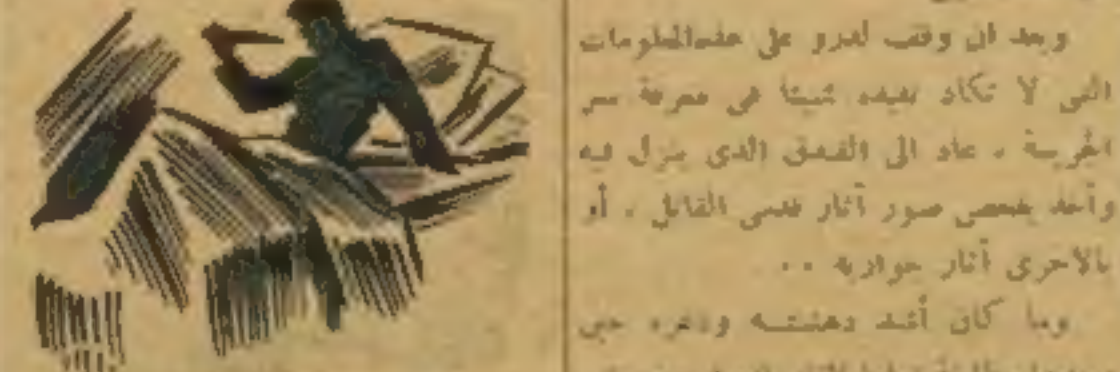 وبعد ان وقف لدرو على هذه المعلومات
التي لا تكاد تفيده شيئا في معرفة سر
الجريمة ، عاد الى الفندق الذي ينزل فيه
وأخذ يفحص صور آثار قدمي القاتل ، أو
بالاحرى آثار جواربه ..
وما كان أشد دهشته وذعره حين